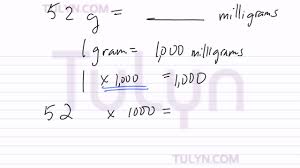 TULYN.COM
52 g = ________ milligrams
1 gram = 1,000 milligrams
1 x 1,000 = 1,000
Tulyn
52 x 1000 =
TULYN.COM